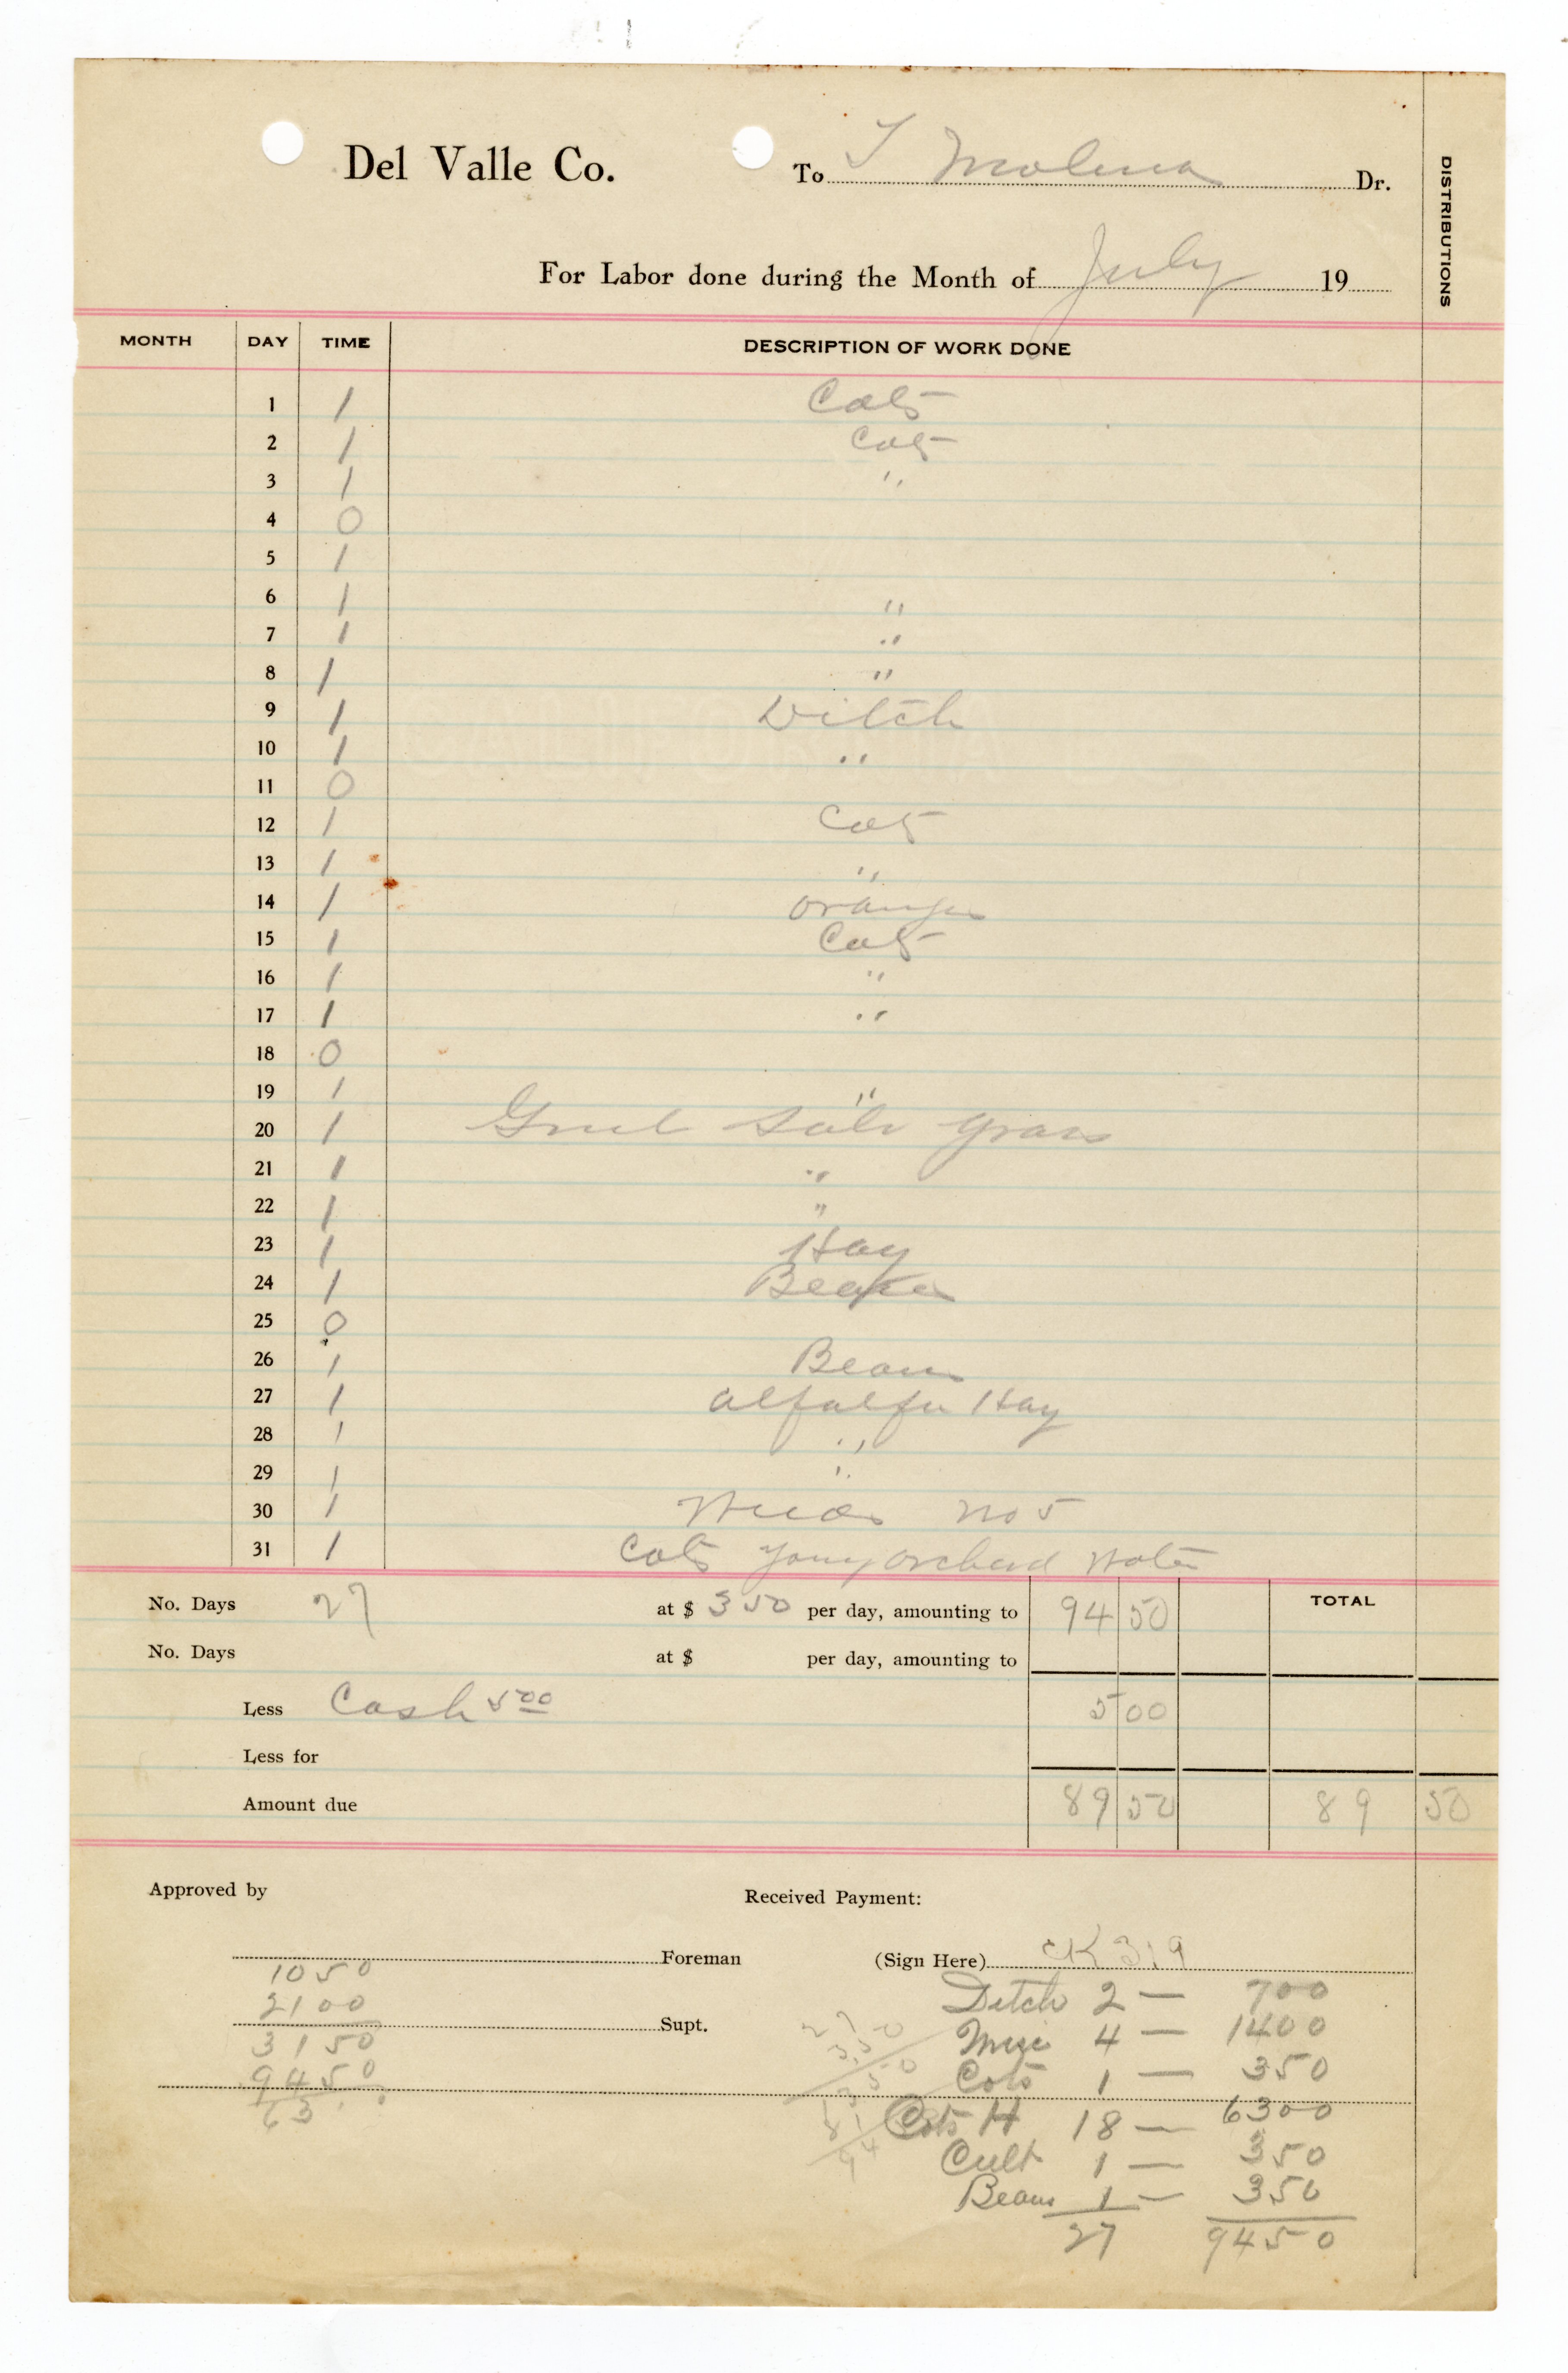 Del Valle Co. To J Molina Dr.
DISTRIBUTIONS
For Labor done during the Month of July 19
MONTH DAY TIME DESCRIPTION OF WORK DONE
1 1 Cots
2 1 Cots
3 1 "
4 0
5 1
6 1 "
7 1 "
8 1 "
9 1 Ditch
10 1 "
11 0
12 1 Cots
13 1 "
14 1 oranges
15 1 Cots
16 1 "
17 1 "
18 0
19 1 "
20 1 grass
21 1 "
22 1 "
23 1 Hay
24 1
25 0
26 1 Beans
27 1 alfalfa Hay
28 1 "
29 1 "
30 1 No 5
31 1 Cots Young orchard
No. Days 27 at $ 3 50 per day, amounting to 94 50 TOTAL
No. Days at $ per day, amounting to
Less Cash 5 00 5 00
Less for
Amount due 89 50 89 50
Approved by Received Payment:
Foreman (Sign Here) CK 319
10 50
21 00
Supt.
31 50
94 50
63
27
3.50
Ditch 2 — 7 00
4 — 14 00
Cots 1 — 3 50
Cots H 18 — 63 00
Cult 1 — 3 50
Beans 1 — 3 50
27 94 50